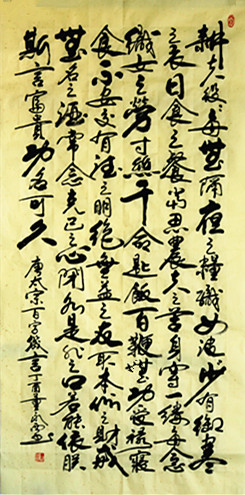 耕夫役役多無隔夜之糧織女波波少有御寒
之衣日食三餐當思農夫之苦身穿一縷每念
織女之勞寸絲千命匙飯百鞭無功受祿寢
食不安交有德之朋絕無益之友取本份之財戒
無名之酒常念克己之心閉却是非之口若能依朕
斯言富貴功名可久
唐太宗百字箴言丁酉